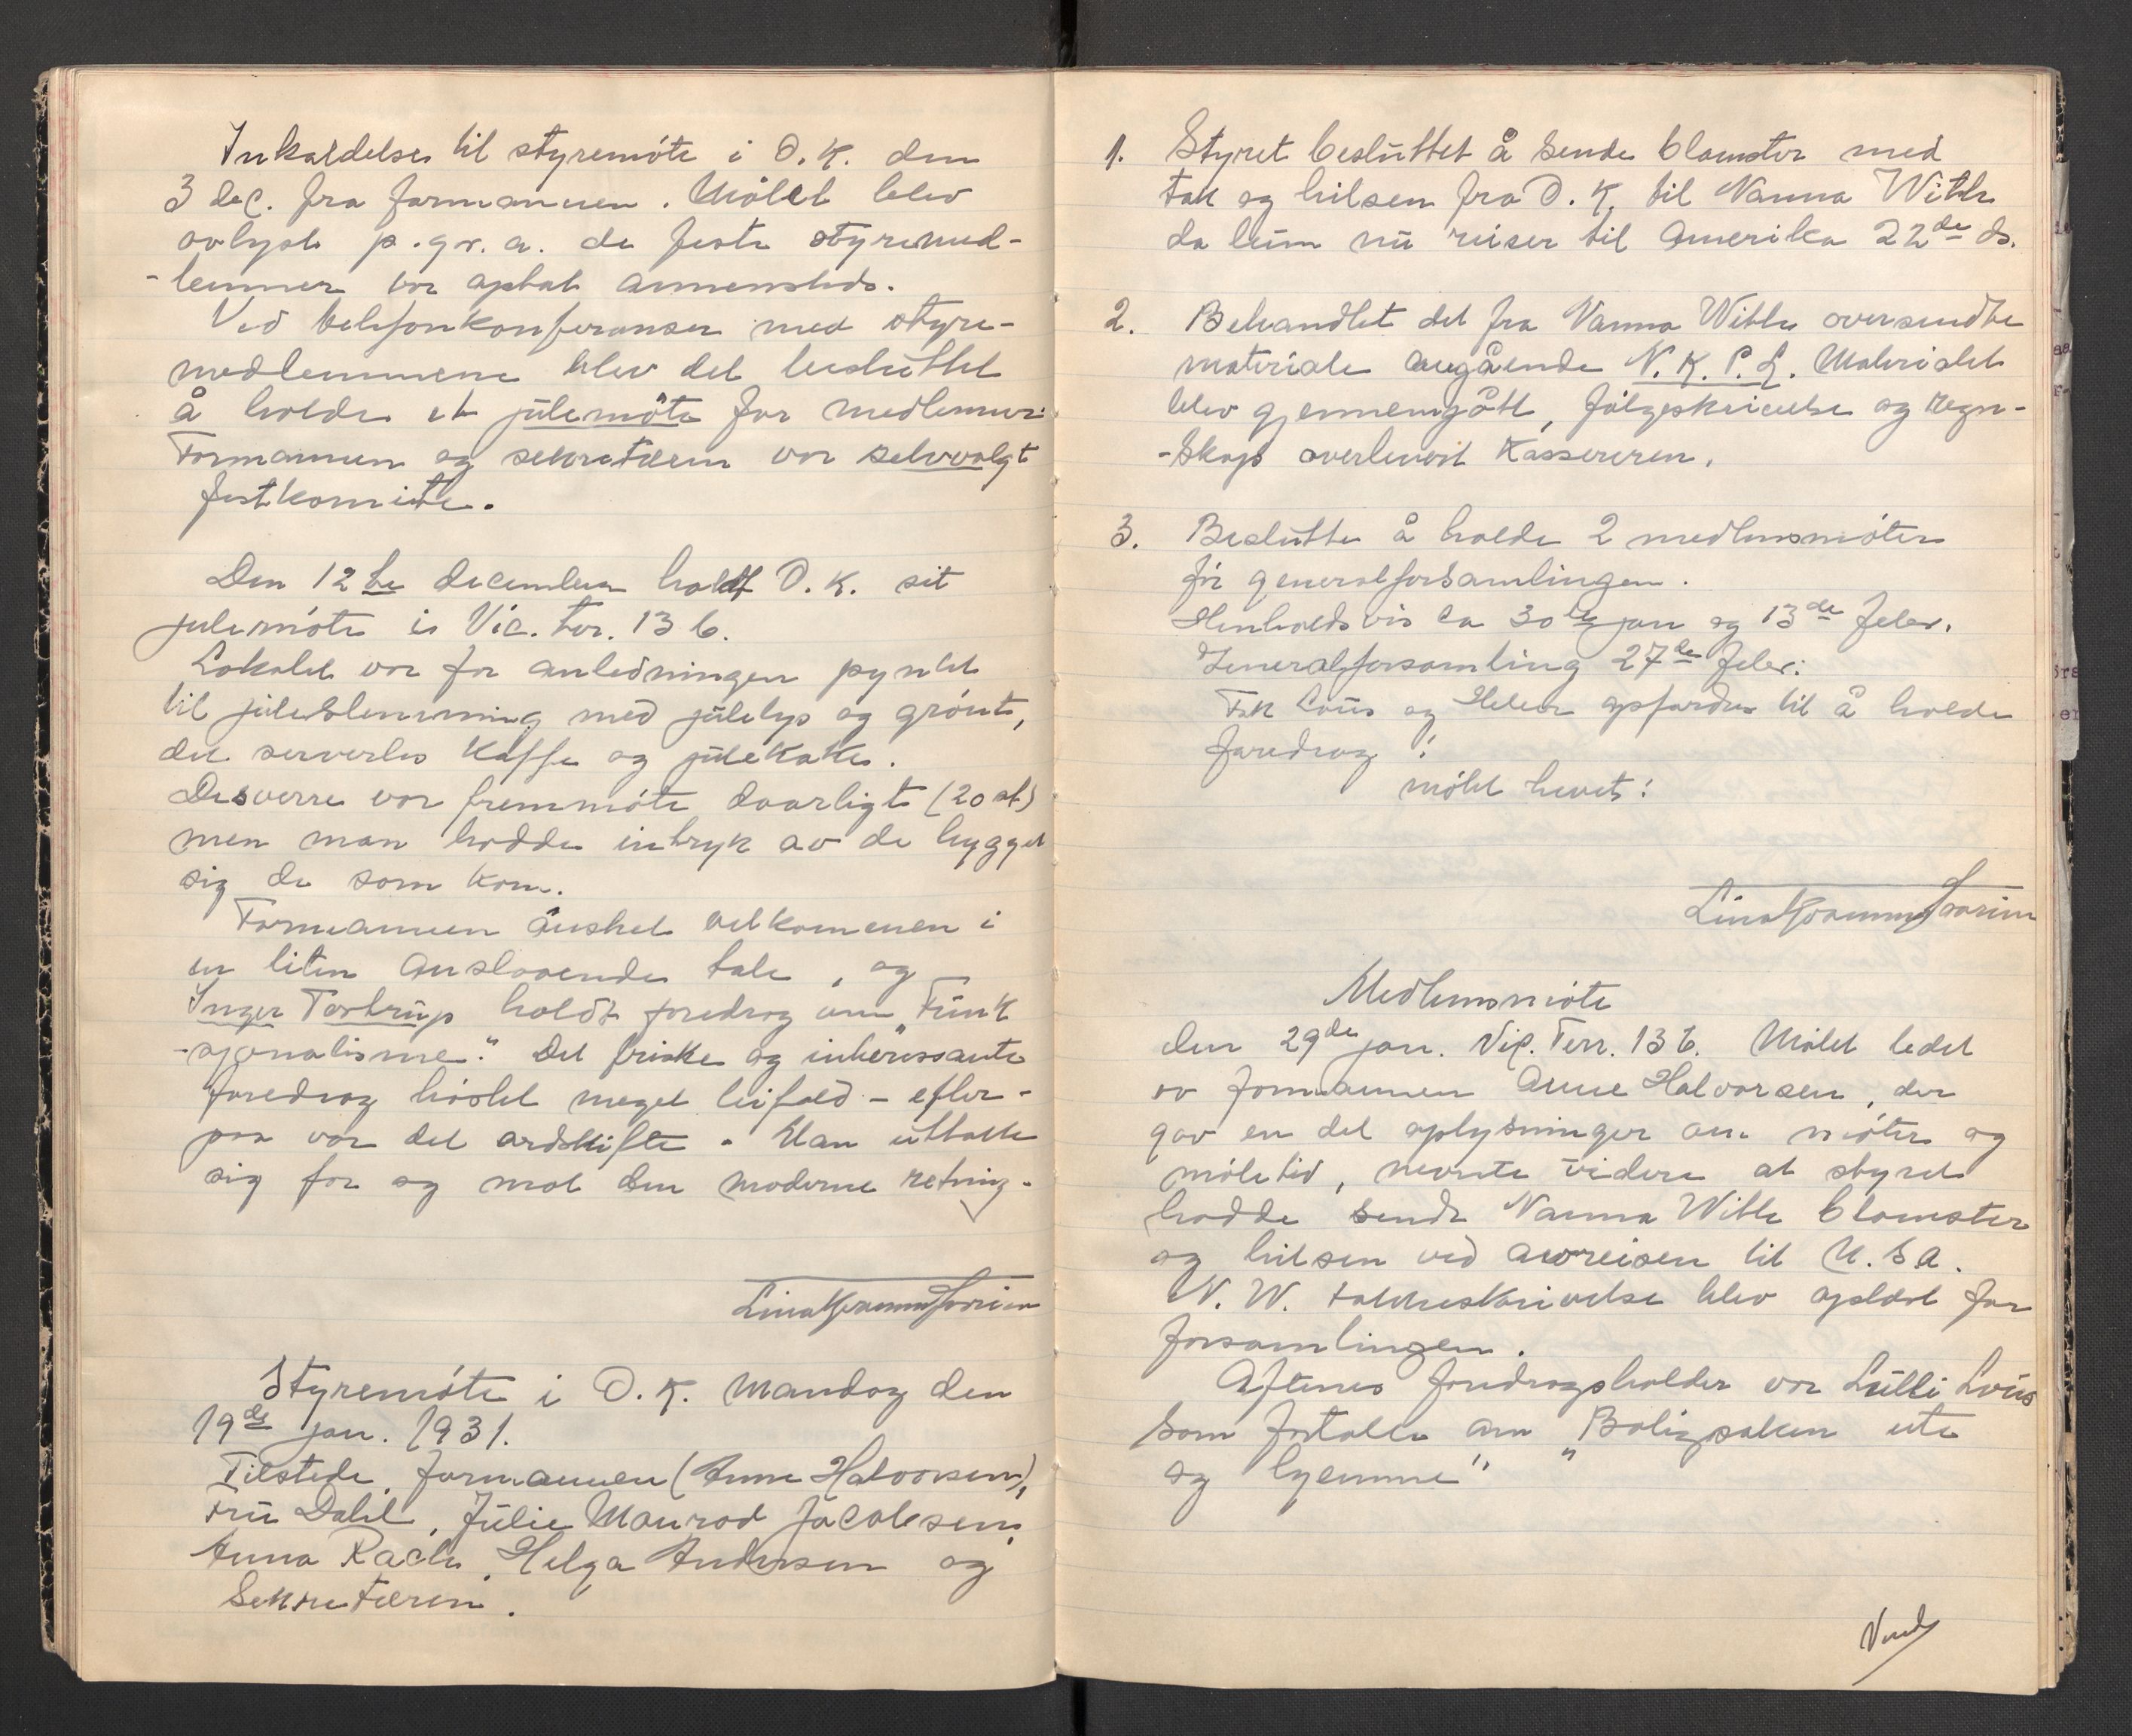 Inkaldelse til styremöte i O.K. den
3 dec. fra formannen. Mötet blev
avlyst p.gr.a. de feste styremed-
-lemmer var optat annensteds.
Ved telefonkonferanser med styre-
medlemmene blev det besluttet
å holde et julemöte for medlemmer.
Formannen og sekretæren var selvvalgt
festkomite.
Den 12te december holdt O.K. sit
julemöte i Vic. ter. 13 b.
Lokalet var for anledningen pyntet
til julestemning med julelys og grönt,
det servertes kaffe og julekake.
Desverre var fremmöte daarligt (20 st)
men man hadde intryk av de hygget
sig de som kom.
Formannen önsket velkommen i
en liten anslaaende tale, og
Inger Tostrup holdt foredrag om „Funk
-sjonalisme." Det friske og interessante
foredrag höstet meget bifald – efter-
paa var det ordskifte. Man uttalte
sig for og mot den moderne retning.
Styremöte i O.K. mandag den
19de jan. 1931.
Tilstede, formannen (Anne Halvorsen),
Fru Dahl, Julie Maurod Jacobsen,
Anna Rach, Helga Andersen og
Sekretæren.
1. Styret besluttet å sende blomster med
tak og hilsen fra O.K. til Nanna With
da hun nu reiser til Amerika 22de ds.
2. Behandlet det fra Nanna With oversendte
materiale angående N.K.P.L. Materialet
blev gjennemgått, fölgeskrivelse og regn-
-skap overlevert Kassereren.
3. Beslutte å holde 2 medlemsmöter
för generalforsamlingen.
Henholdsvis ca 30te jan og 13de febr.
Generalforsamling 27de febr.
Frk Lous og Helen opfordres til å holde
foredrag!
mötet hevet!
Medlemsmöte
den 29de jan. Vic. Terr. 13 b. Mötet ledet
av formannen Anne Halvorsen, der
gav en del oplysninger om möter og
möletid, nevnte videre at styret
hadde sendt Nanna With blomster
og hilsen ved avreisen til U.S.A.
N.W. takkeskrivelse blev oplest for
forsamlingen.
Aftenes foredragsholder var Lulli Lous
som fortalte om „Boligsaken ute
og hjemme"
Vend